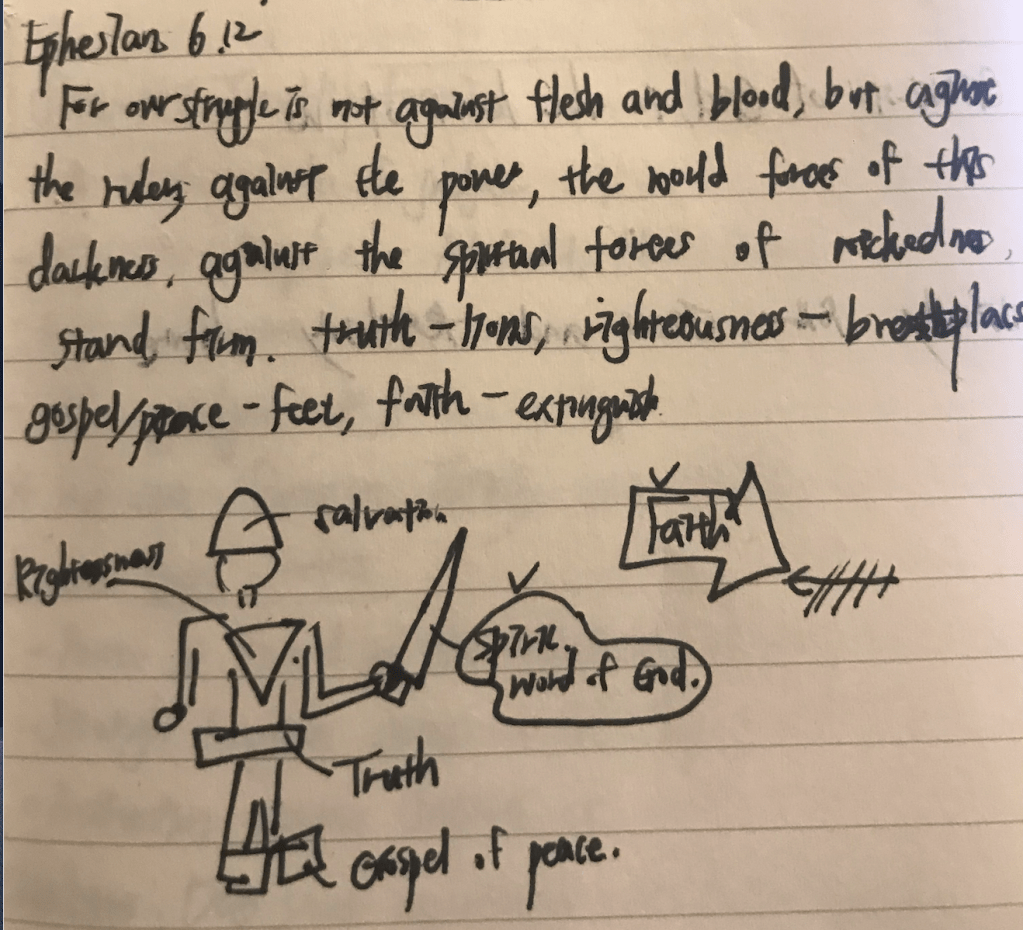 Ephesian 6:12
For our struggle is not against flesh and blood, but against
the rulers, against the power, the world forces of this
darkness, against the spiritual forces of wickedness,
stand firm. truth - lions, righteousness - breastplace
gospel/peace - feet, faith - extinguish
salvation
Faith
Righteousness
Spirit.
word of God.
Truth
Gospel of peace.